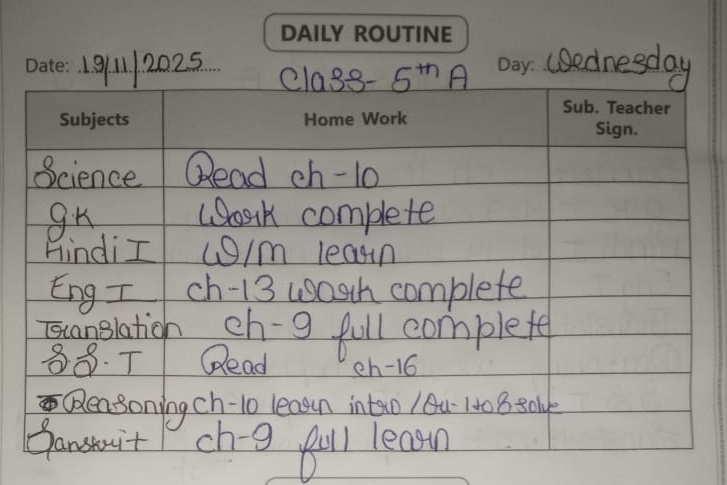 DAILY ROUTINE
Date: 19/11/2025 Class- 5th A Day: Wednesday
Subjects Home Work Sub. Teacher Sign.
Science Read ch-10
g.K Work complete
Hindi I W/m learn
Eng I ch-13 work complete
Translation ch-9 full complete
S.S.T Read ch-16
Reasoning ch-10 learn intro / Qu-1 to 8 solve
Sanskrit ch-9 full learn